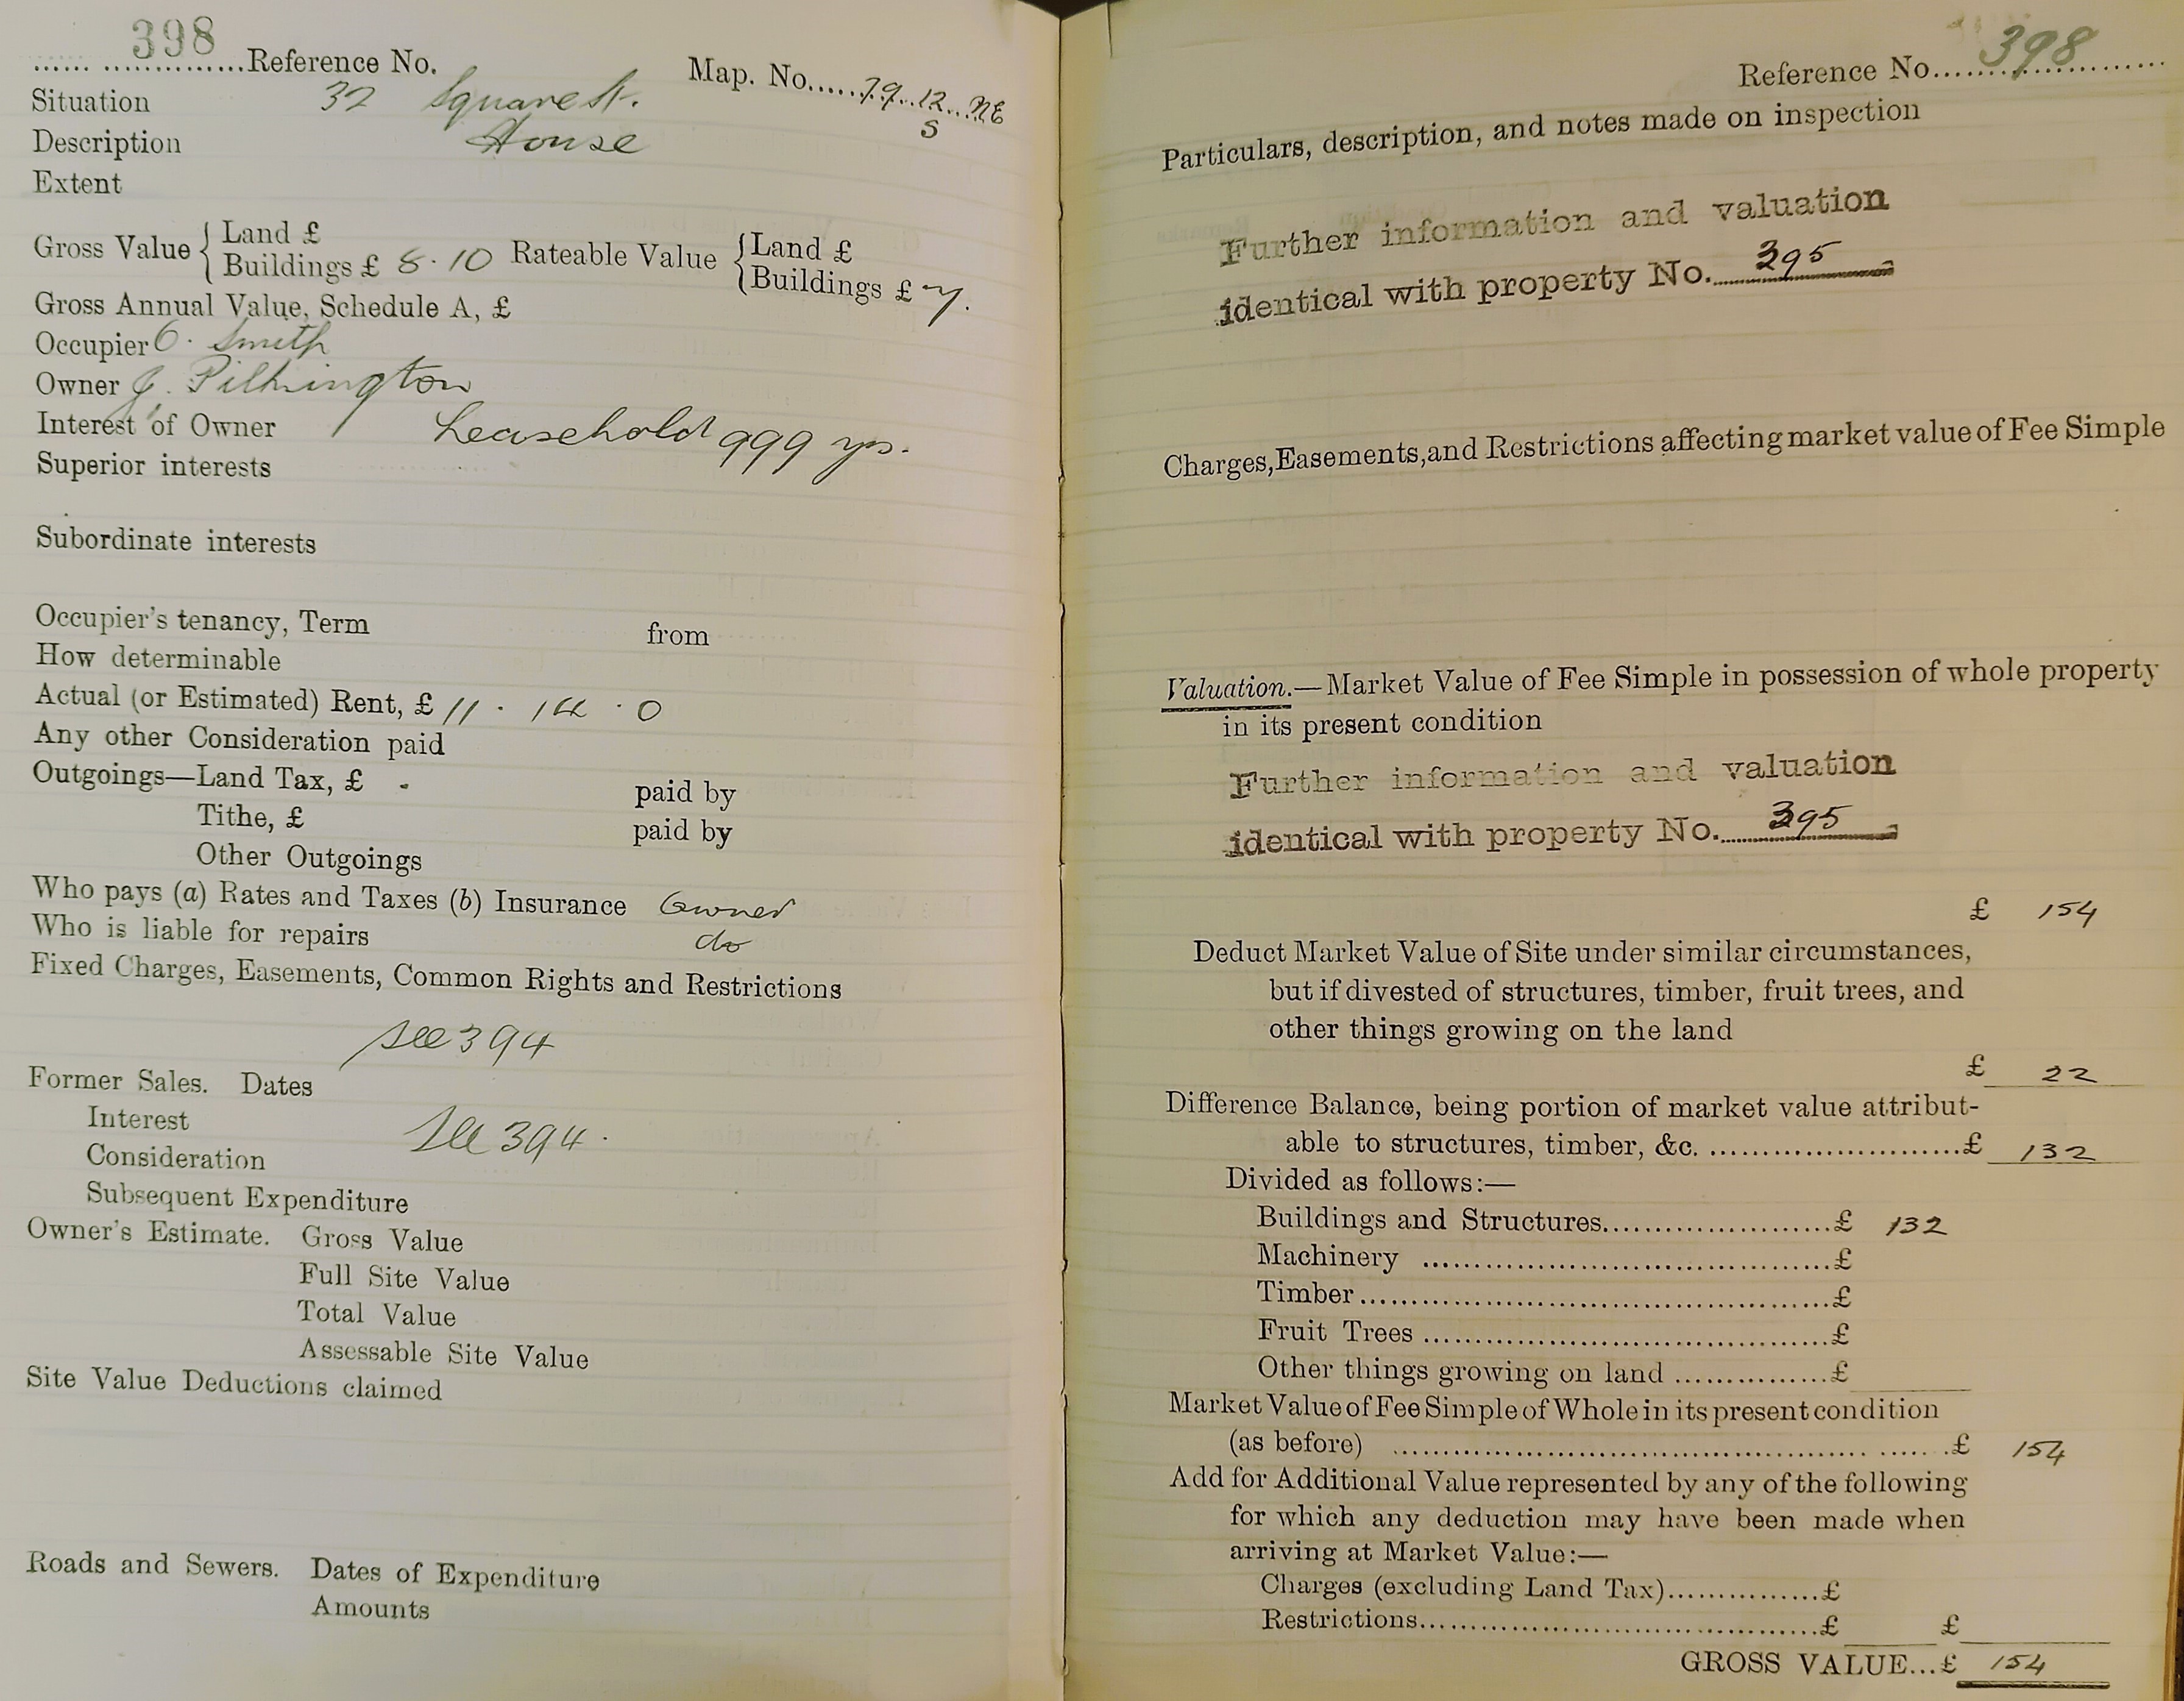 398
Reference No.
Map. No. 79. 12. NE
S
Situation 32 Square St.
Description House
Extent
Gross Value { Land £
Buildings £ 8.10 Rateable Value { Land £
Buildings £ 7.
Gross Annual Value, Schedule A, £
Occupier Smith
Owner J. Pilkington
Interest of Owner Leasehold 999 yrs.
Superior interests
Subordinate interests
Occupier's tenancy, Term from
How determinable
Actual (or Estimated) Rent, £ 11 . 14 . 0
Any other Consideration paid
Outgoings—Land Tax, £ - paid by
Tithe, £ paid by
Other Outgoings
Who pays (a) Rates and Taxes (b) Insurance Owner
Who is liable for repairs do
Fixed Charges, Easements, Common Rights and Restrictions
see 394
Former Sales. Dates
Interest See 394.
Consideration
Subsequent Expenditure
Owner's Estimate. Gross Value
Full Site Value
Total Value
Assessable Site Value
Site Value Deductions claimed
Roads and Sewers. Dates of Expenditure
Amounts
Reference No. 398
Particulars, description, and notes made on inspection
Further information and valuation
identical with property No. 395
Charges, Easements, and Restrictions affecting market value of Fee Simple
Valuation.—Market Value of Fee Simple in possession of whole property
in its present condition
Further information and valuation
identical with property No. 395
£ 154
Deduct Market Value of Site under similar circumstances,
but if divested of structures, timber, fruit trees, and
other things growing on the land
£ 22
Difference Balance, being portion of market value attribut-
able to structures, timber, &c. £ 132
Divided as follows:—
Buildings and Structures £ 132
Machinery £
Timber £
Fruit Trees £
Other things growing on land £
Market Value of Fee Simple of Whole in its present condition
(as before) £ 154
Add for Additional Value represented by any of the following
for which any deduction may have been made when
arriving at Market Value:—
Charges (excluding Land Tax) £
Restrictions £ £
GROSS VALUE... £ 154